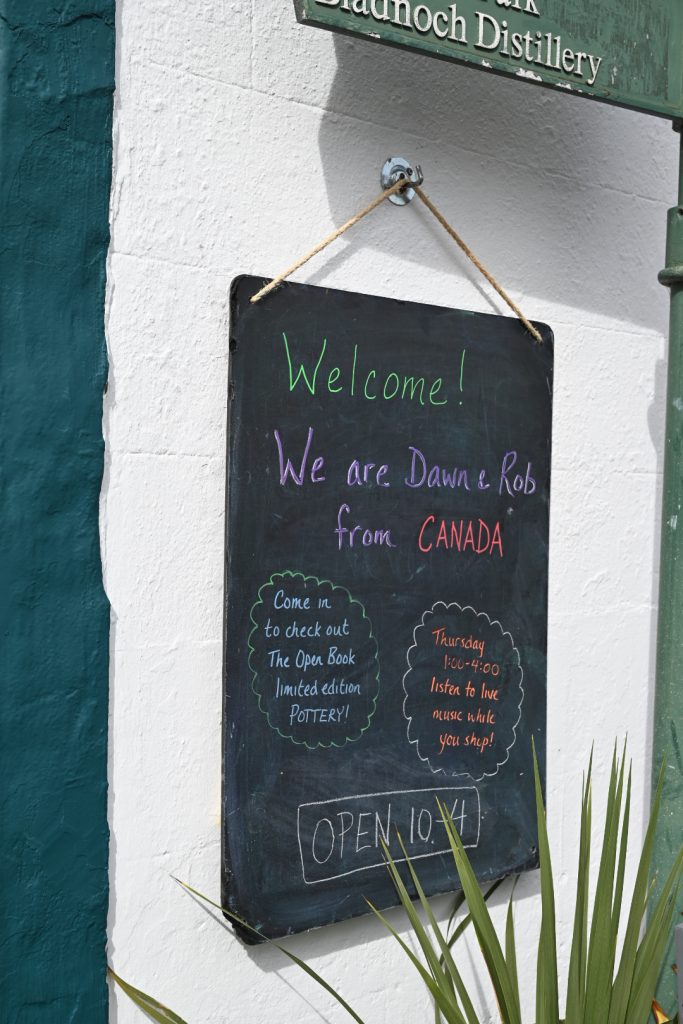 Bladnoch Distillery
Welcome!
We are Dawn & Rob
from CANADA
Come in
to check out
The Open Book
limited edition
POTTERY!
Thursday
1:00-4:00
listen to live
music while
you shop!
OPEN 10-4